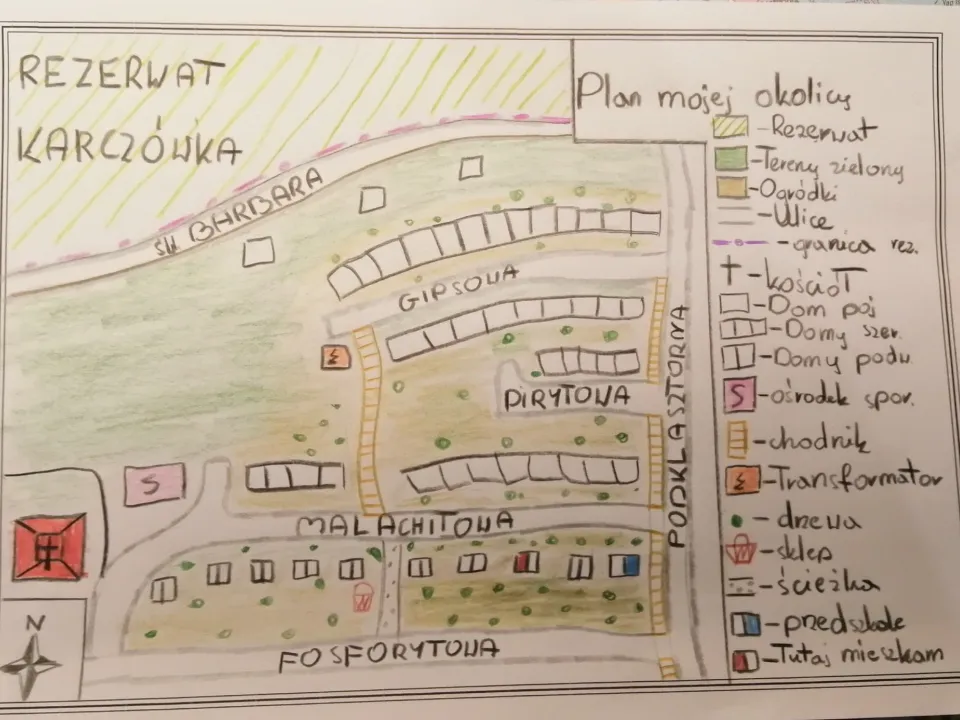 REZERWAT
KARCZÓWKA
ŚW BARBARA
GIPSOWA
PIRYTOWA
PODKLASZTORNA
Ł
S
MALACHITOWA
FOSFORYTOWA
N
Plan mojej okolicy
-Rezerwat
-Tereny zielony
-Ogródki
-Ulice
- granica rez.
-kościół
-Dom poj
-Domy szer.
-Domy podw.
S -ośrodek spor.
-chodnik
Ł -Transformator
- drzewa
-sklep
-ścieżka
-przedszkole
-Tutaj mieszkam